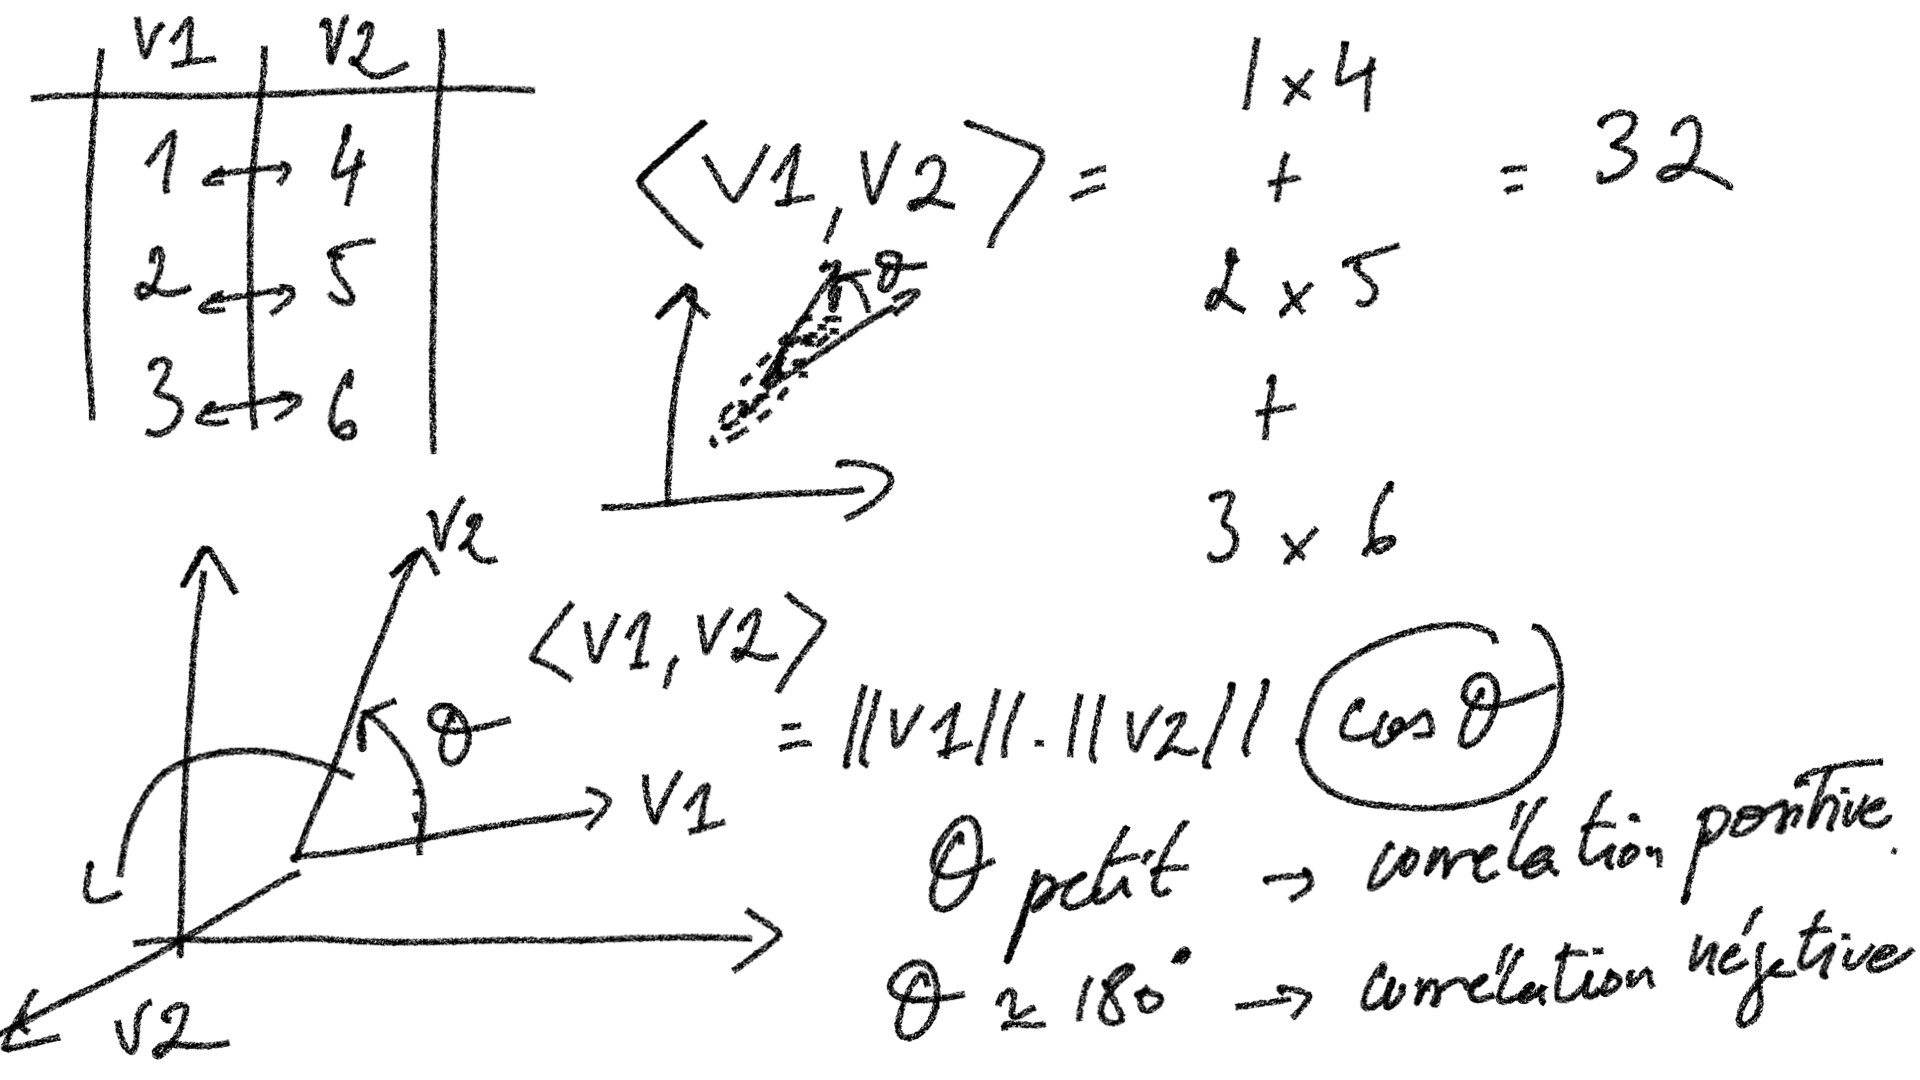 v1 v2
1 ↔ 4
2 ↔ 5
3 ↔ 6
⟨v1, v2⟩ = 1 x 4 + 2 x 5 + 3 x 6 = 32
θ
v2
θ
v1
v2
⟨v1, v2⟩
= ||v1||.||v2|| cos θ
θ petit → corrélation positive.
θ ≃ 180° → corrélation négative